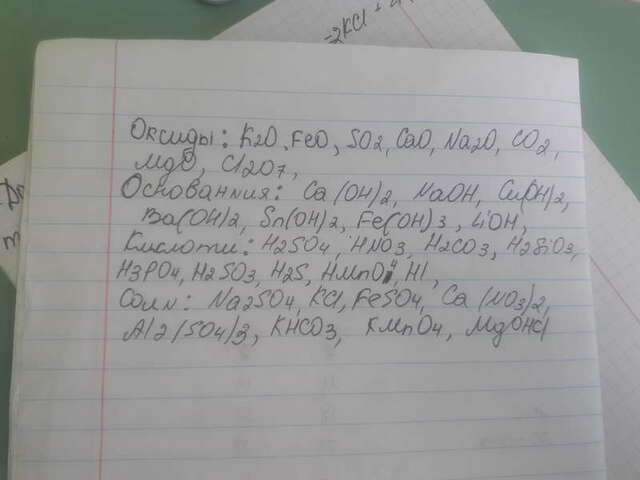 Оксиды: K2O, FeO, SO2, CaO, Na2O, CO2,
MgO, Cl2O7,
Основанния: Ca(OH)2, NaOH, Cu(OH)2,
Ba(OH)2, Sn(OH)2, Fe(OH)3, LiOH,
Кислоти: H2SO4, HNO3, H2CO3, H2SiO3,
H3PO4, H2SO3, H2S, HMnO4, HI
Соли: Na2SO4, KCl, FeSO4, Ca(NO3)2,
Al2(SO4)3, KHCO3, KMnO4, MgOHCl